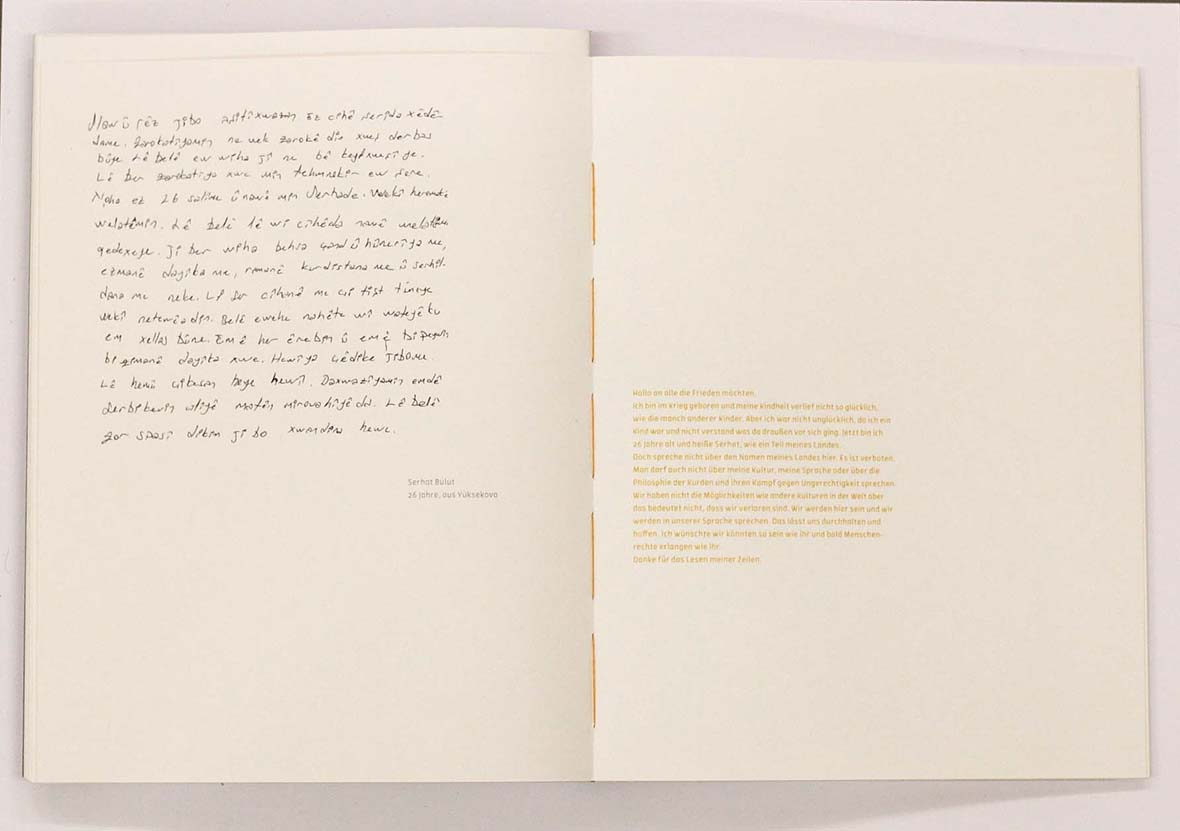 Slav û rêz jibo aşitixwazan Ez cihê şerida xêdê-
dame. Zarokatiyamin ne wek zarokê die xweş derbas
bûye Lê belê ew wiha ji ne bê keyfxweşî ye.
Lê ber zarokatiya xwe min tehmnekir ew şere.
Noha ez 26 salime û navê min Serhade. Wekî heremek
welatêmin. Lê belê lê wî cihêda navê welatêmin
qedexeye. Ji ber wiha behsa çand û hûneriya me,
ezmanê dayika me, ramanê kurdistana me û serhil-
dana me neke. Li ser cihanê me çi tişt tineye
wekî netewêadin. Belê ewehe nahête wî wateyê ku
em xellas bûne. Emê her êrebin û emê bipeyvin
bi zimanê dayika xwe. Hewiya çêdike jibome.
Lê hemû çikasan heye hewî. Daxwaziyamin emdê
derbikevin mafên mirovahiyêda. Lê belê
zor spasî dikin ji bo xwendina hewe.
Serhat Bulut
26 Jahre, aus Yüksekova
Hallo an alle die Frieden möchten.
Ich bin im Krieg geboren und meine Kindheit verlief nicht so glücklich,
wie die manch anderer Kinder. Aber ich war nicht unglücklich, da ich ein
Kind war und nicht verstand was da draußen vor sich ging. Jetzt bin ich
26 Jahre alt und heiße Serhat, wie ein Teil meines Landes.
Doch spreche nicht über den Namen meines Landes hier. Es ist verboten.
Man darf auch nicht über meine Kultur, meine Sprache oder über die
Philosphie der Kurden und ihren Kampf gegen Ungerechtigkeit sprechen.
Wir haben nicht die Möglichkeiten wie andere Kulturen in der Welt aber
das bedeutet nicht, dass wir verloren sind. Wir werden hier sein und wir
werden in unserer Sprache sprechen. Das lässt uns durchhalten und
hoffen. Ich wünschte wir könnten so sein wie ihr und bald Menschen-
rechte erlangen wie ihr.
Danke für das Lesen meiner Zeilen.